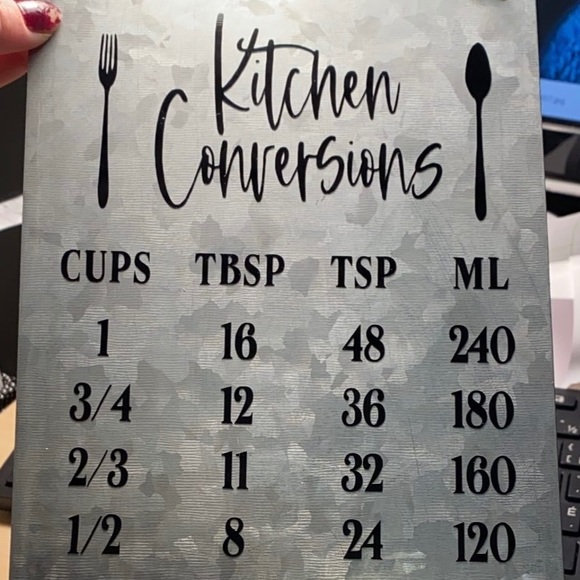 Kitchen
Conversions
CUPS TBSP TSP ML
1 16 48 240
3/4 12 36 180
2/3 11 32 160
1/2 8 24 120